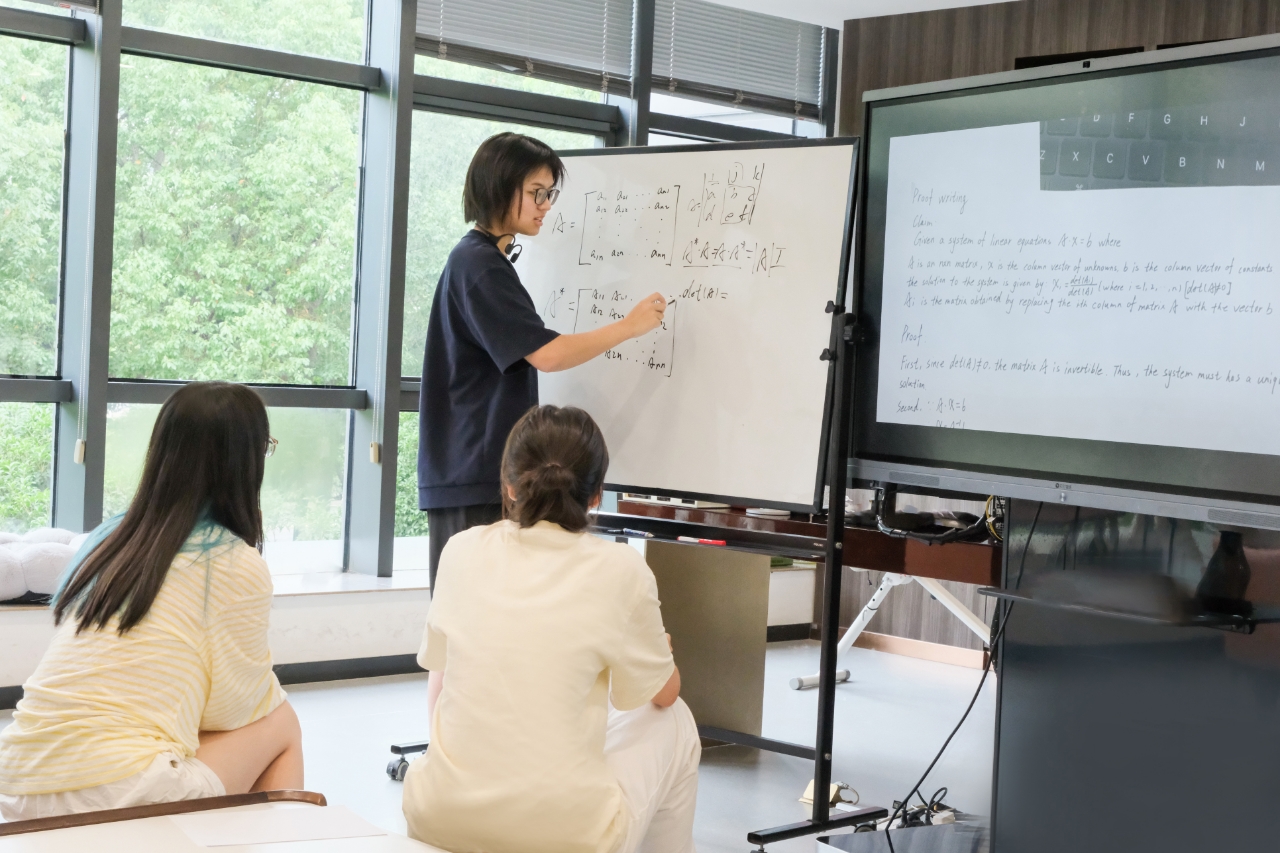 A = [ a₁₁ a₂₁ ... aₙ₁
a₁₂ a₂₂ ... aₙ₂
a₁ₙ a₂ₙ ... aₙₙ ]
i j k
A*·A = A·A* = |A|I
A* = [ A₁₁ A₂₁
A₁₂
A₂ₙ ... Aₙₙ ]
det(A) =
D F G H J
Z X C V B N M
Proof writing
Claim
Given a system of linear equations A x = b where
A is an nxn matrix, x is the column vector of unknowns b is the column vector of constants
the solution to the system is given by Xᵢ = det(Aᵢ)/det(A) (where i = 1, 2, .. n) [det(A≠0]
Aᵢ is the matrix obtained by replacing the ith column of matrix A with the vector b
Proof
First, since det(A)≠0. the matrix A is invertible. Thus, the system must has a uniq
solution
second. ∵ A·X = b